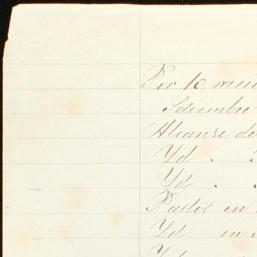 Por 10 
Setiembre
Alcanse de
Yd . .
Yd . .
Pastor en
Yd en
Yd